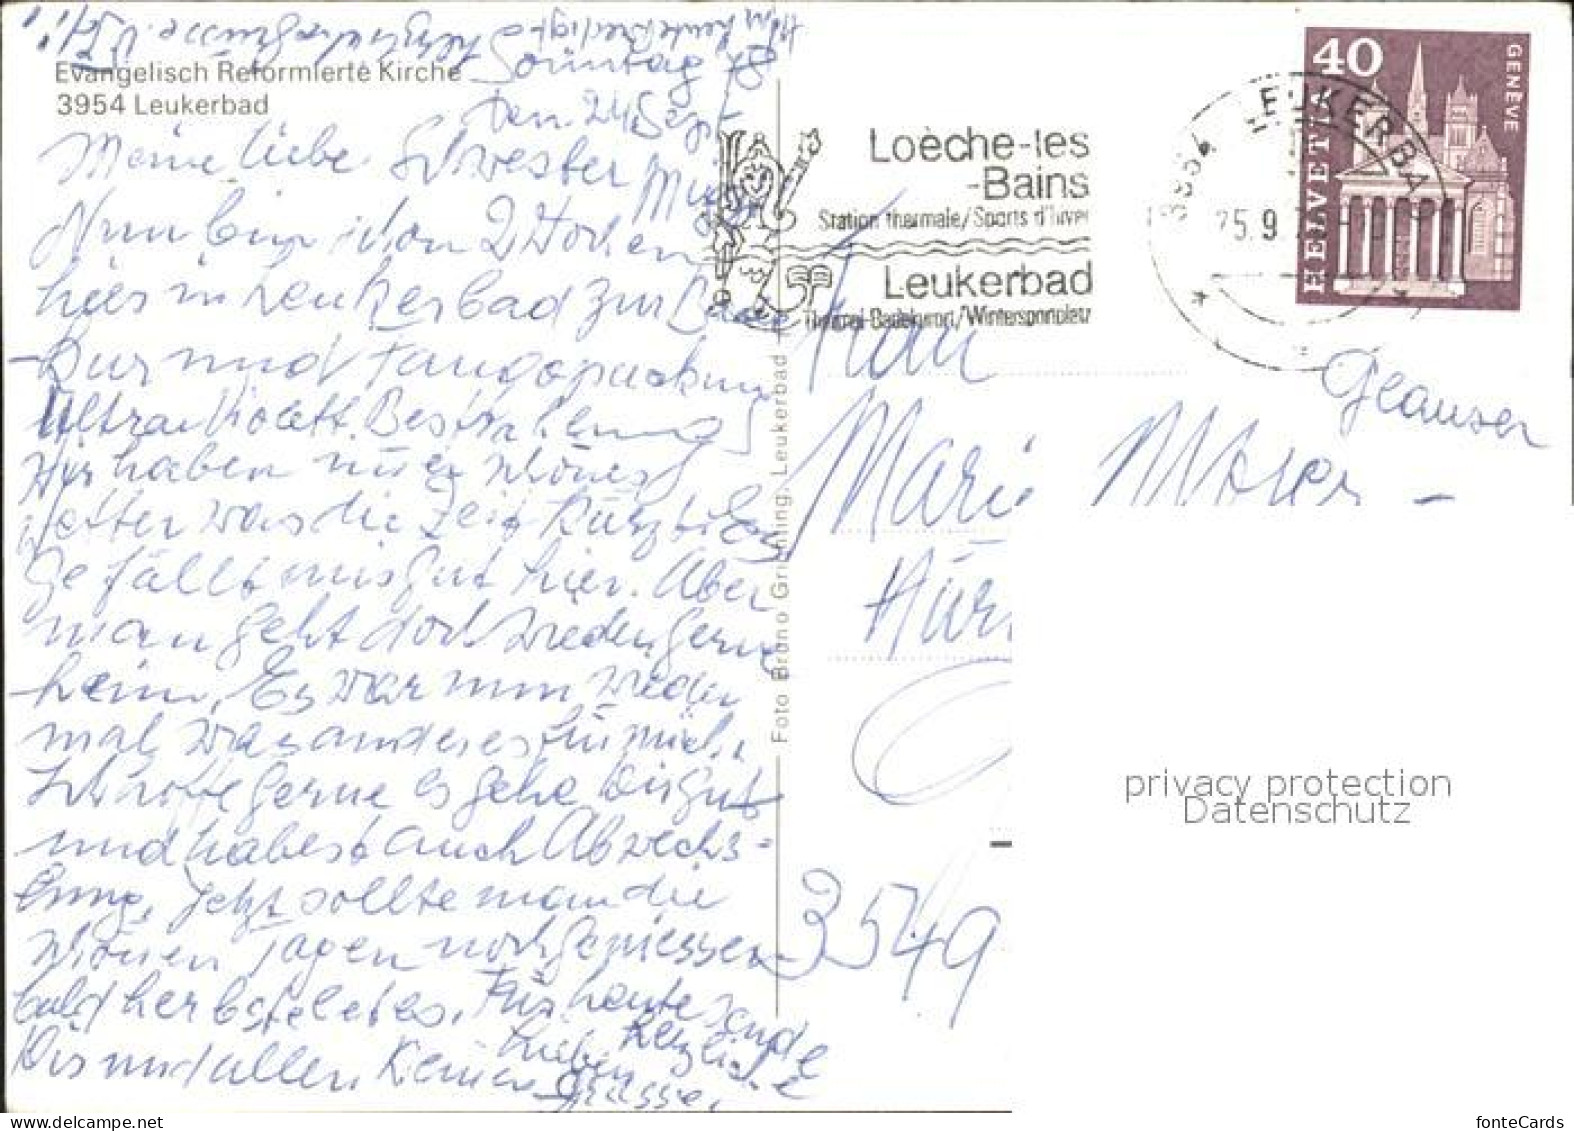 Evangelisch Reformierte Kirche
3954 Leukerbad
Sonntag
den. 24. Sept.
Meine liebe
Nun bin schon 2 Wochen
hier in Leukerbad zur Bade
Kur und Fangopackung
Ultra Violett Bestrahlung
Wir haben schönes
Wetter was die Zeit kürzt. Es
Gefällt mir gut hier. Aber
man geht doch wieder gerne
heim. Es war nun wieder
mal was anderes für mich.
Ich hoffe gerne es gehe Dir gut
und habest auch Abwechs=
lung. Jetzt sollte man die
schönen Tagen noch geniessen
bald herbstelet es. Für heute sende
Dir und allen
Lieben Herzliche
Grüsse.
Loèche-les
-Bains
Station thermale/Sports d'hiver
Leukerbad
Thermal-Badekurort/Wintersportplatz
3954 LEUKERBAD
25.9
40
HELVETIA
GENÈVE
Frau
Glauser
Marie Moser -
3549
Foto Bruno Grichting, Leukerbad
privacy protection
Datenschutz
fonteCards